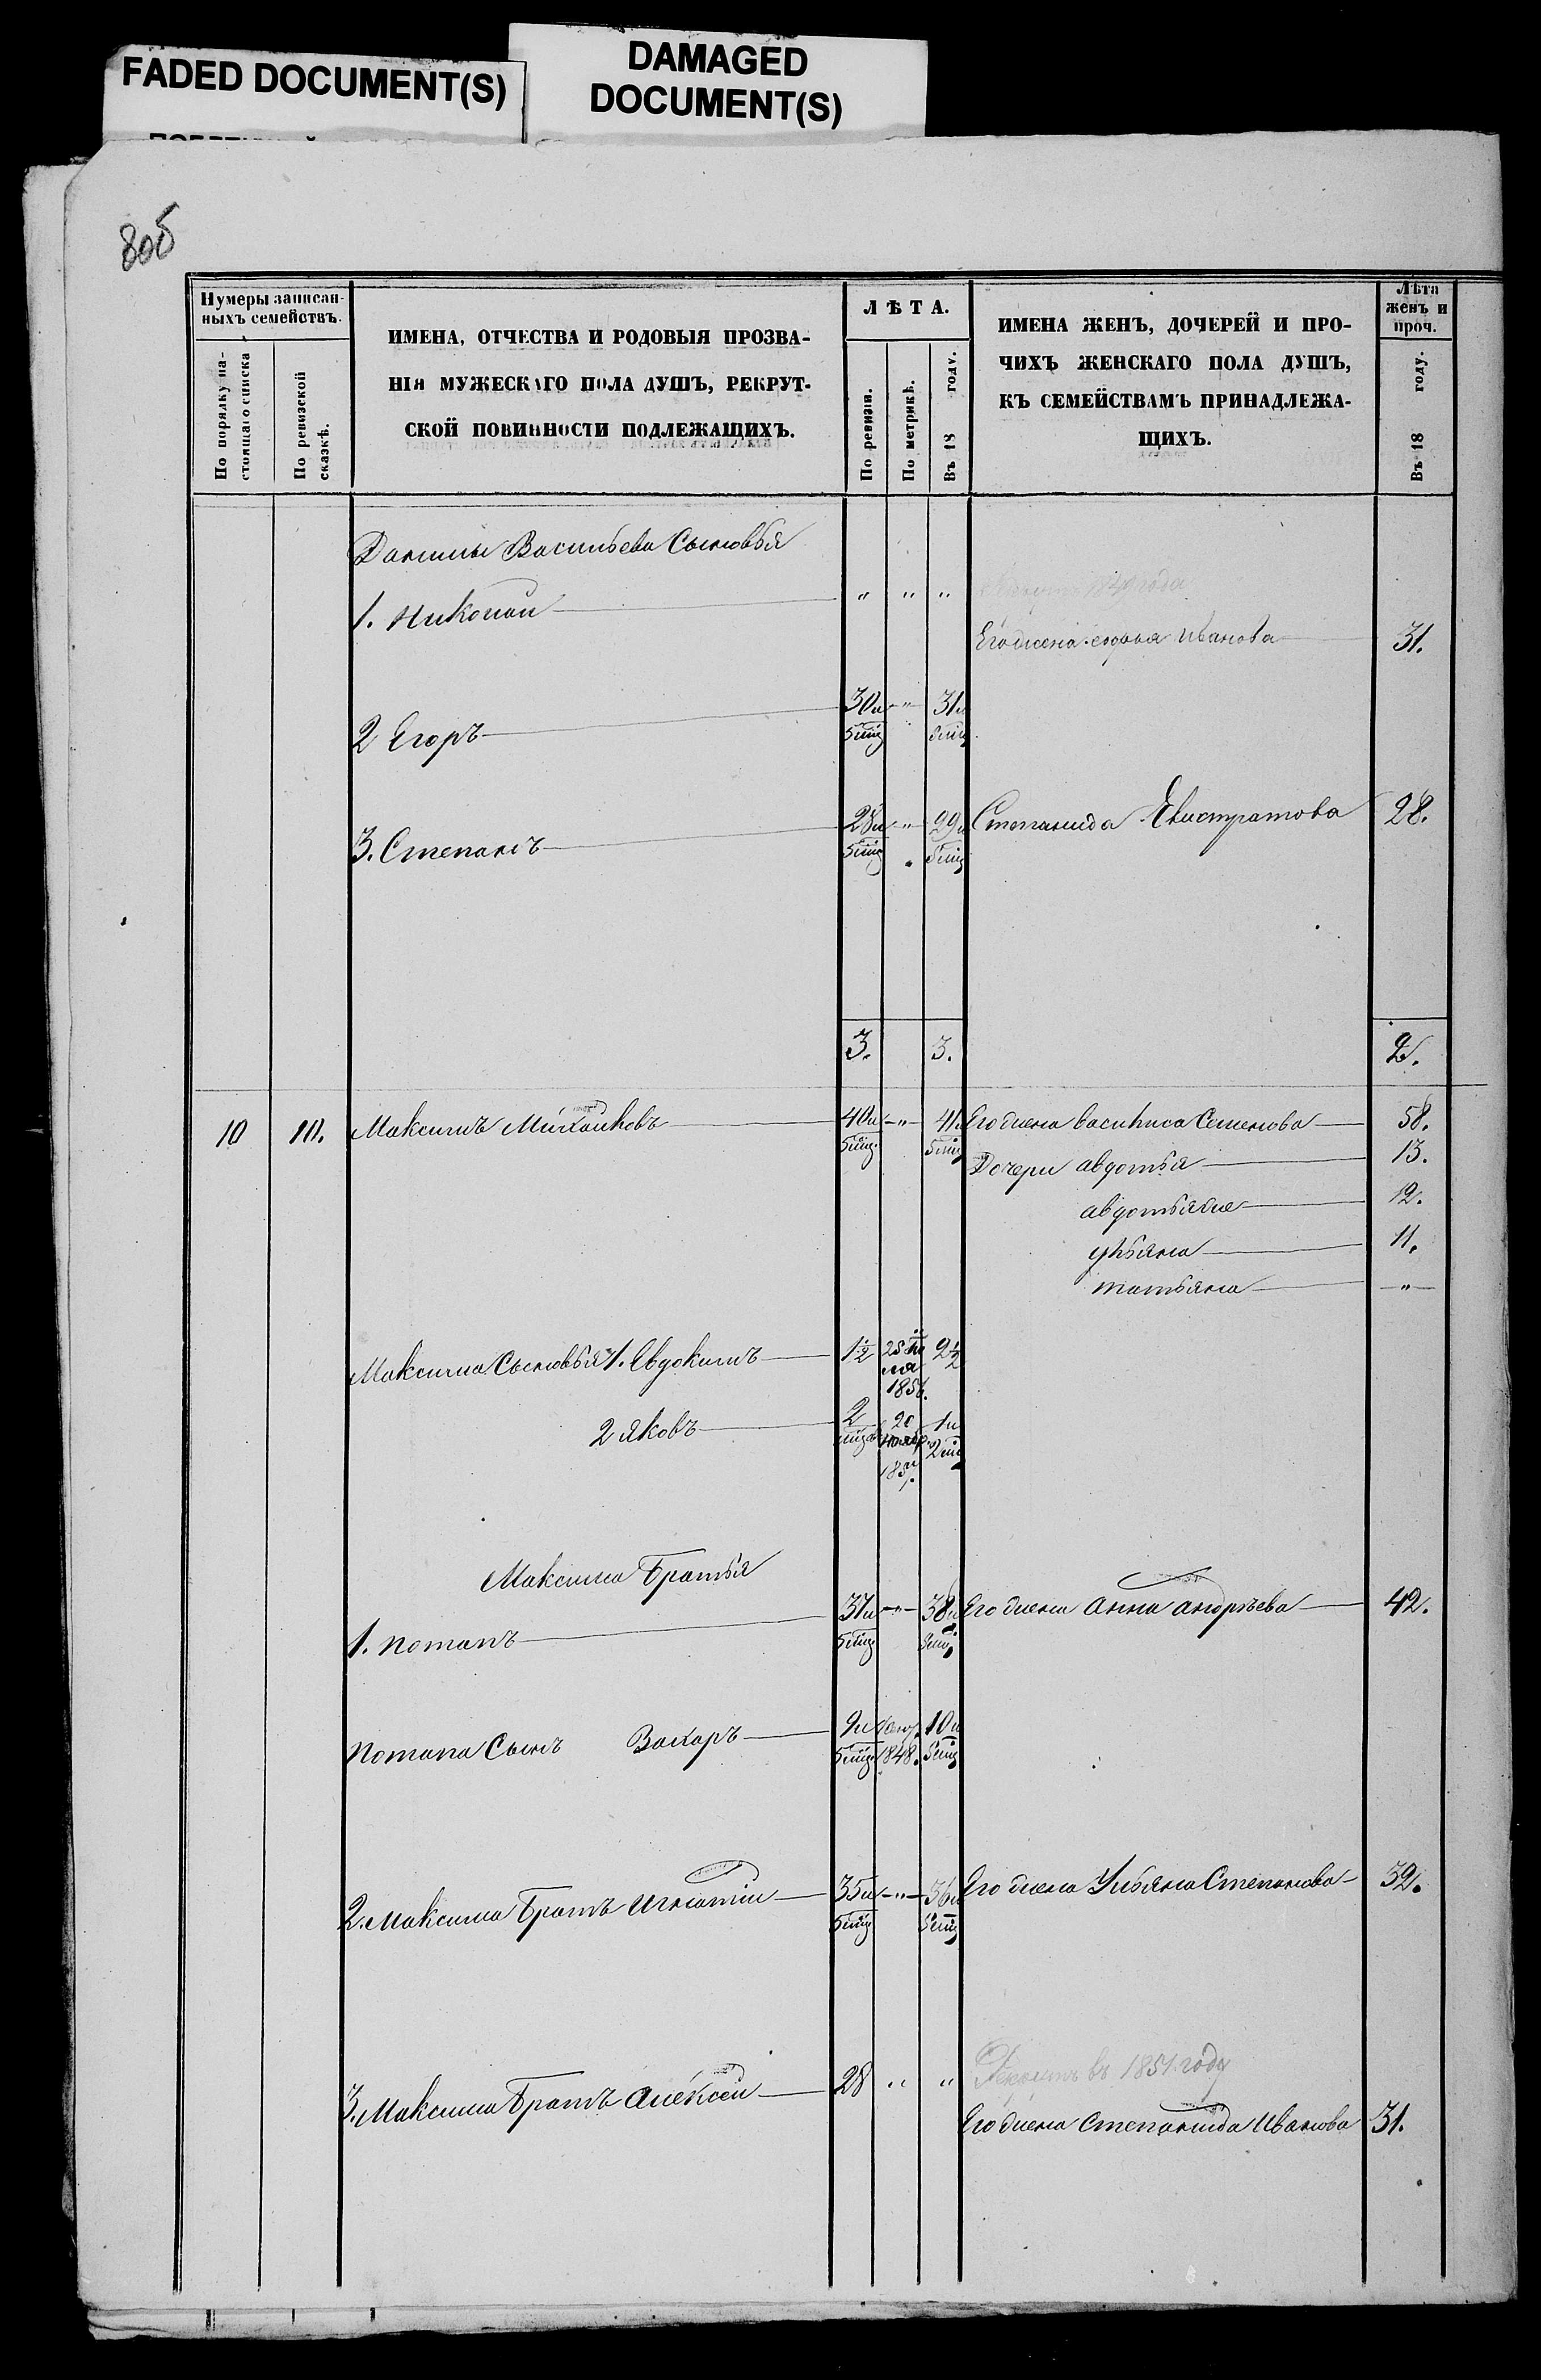 FADED DOCUMENT(S)
DAMAGED
DOCUMENT(S)
80б
Нумеры записан-
ныхъ семействъ.
По порядку на-
стоящаго списка
По ревизской
сказкѣ.
ИМЕНА, ОТЧЕСТВА И РОДОВЫЯ ПРОЗВА-
НІЯ МУЖЕСКАГО ПОЛА ДУШЪ, РЕКРУТ-
СКОЙ ПОВИННОСТИ ПОДЛЕЖАЩИХЪ.
ЛѢТА.
По ревизіи.
По метрикѣ.
Въ 18 году.
ИМЕНА ЖЕНЪ, ДОЧЕРЕЙ И ПРО-
ЧИХЪ ЖЕНСКАГО ПОЛА ДУШЪ,
КЪ СЕМЕЙСТВАМЪ ПРИНАДЛЕЖА-
ЩИХЪ.
Лѣта
женъ и
проч.
Въ 18 году.
Данилы Васильева Сыновья
1. Николай " " " года
Его жена Иванова 31.
2 Егоръ 30 и 5 мѣц " 31 и
3. Степанъ 28 и 5 мѣц " 29 и 5 мѣц Степанида Евистратова 28.
3. 3. 2.
10 10. Максимъ Михайловъ 40 и 5 мѣц. " 41 5 мѣц Его жена василиса Семенова 58.
Дочери авдотья 13.
авдотья же 12.
ульяна 11.
татьяна "
Максима Сыновья 1. Евдокимъ 1½ 28 185 2½
2 яковъ 2 мѣц 20 Ноябр 185 1 и 2 мѣц
Максима Братья
1. потапъ 37 и 5 мѣц " 38 и 5 мѣц Его жена анна андрѣева 42.
потапа Сынъ Захаръ 9 и 5 мѣц 1848. 10 и 5 мѣц
2. Максима Братъ игнатій 35 и 5 мѣц " 36 и 5 мѣц Его жена Ульяна Степанова 32.
3. Максима Братъ алексѣй 28 " " Рекрутъ въ 1851 году
Его жена степанида Иванова 31.